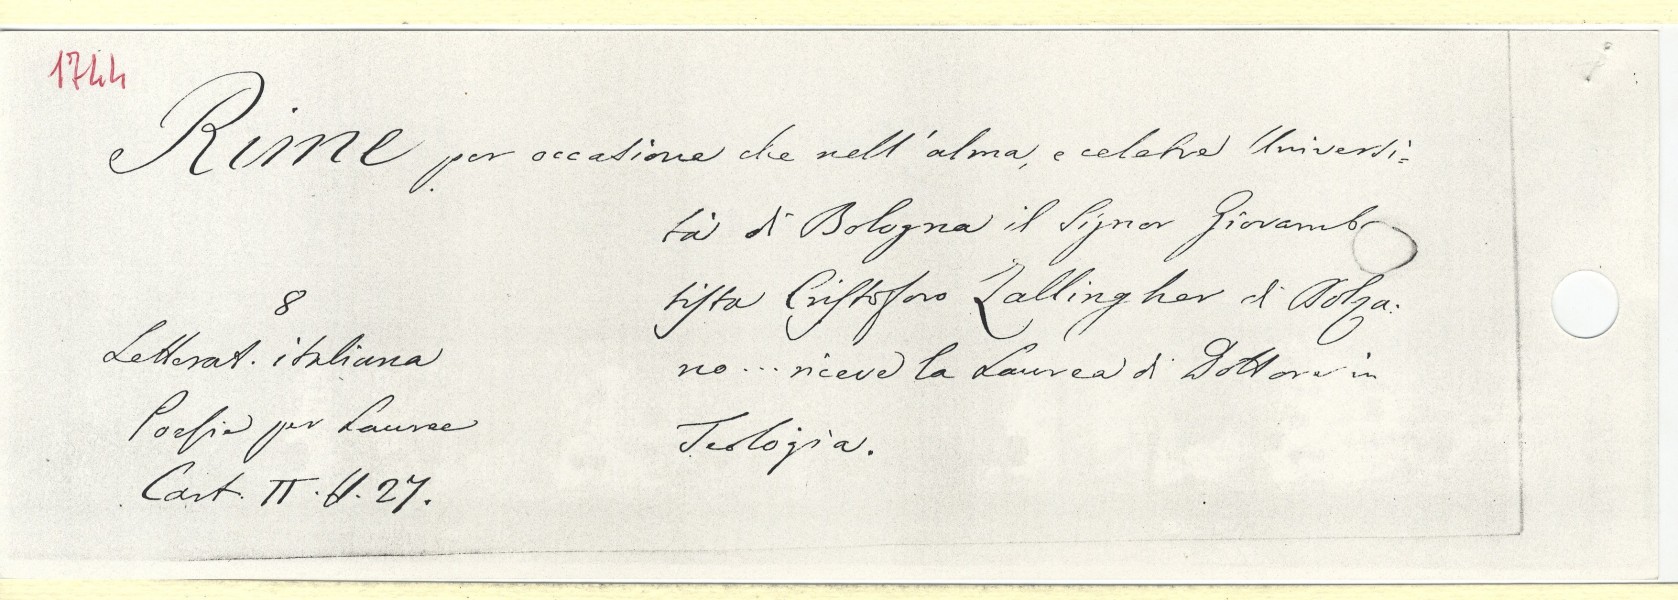 1744
Rime per occasione che nell'alma, e celebre Universi=
tà di Bologna il Signor Giovamb
tista Cristoforo Zallingher di Bolza:
no ... riceve la Laurea di Dottore in
Teologia.
8
Letterat. italiana
Poesie per Lauree
Cart. II. N. 27.